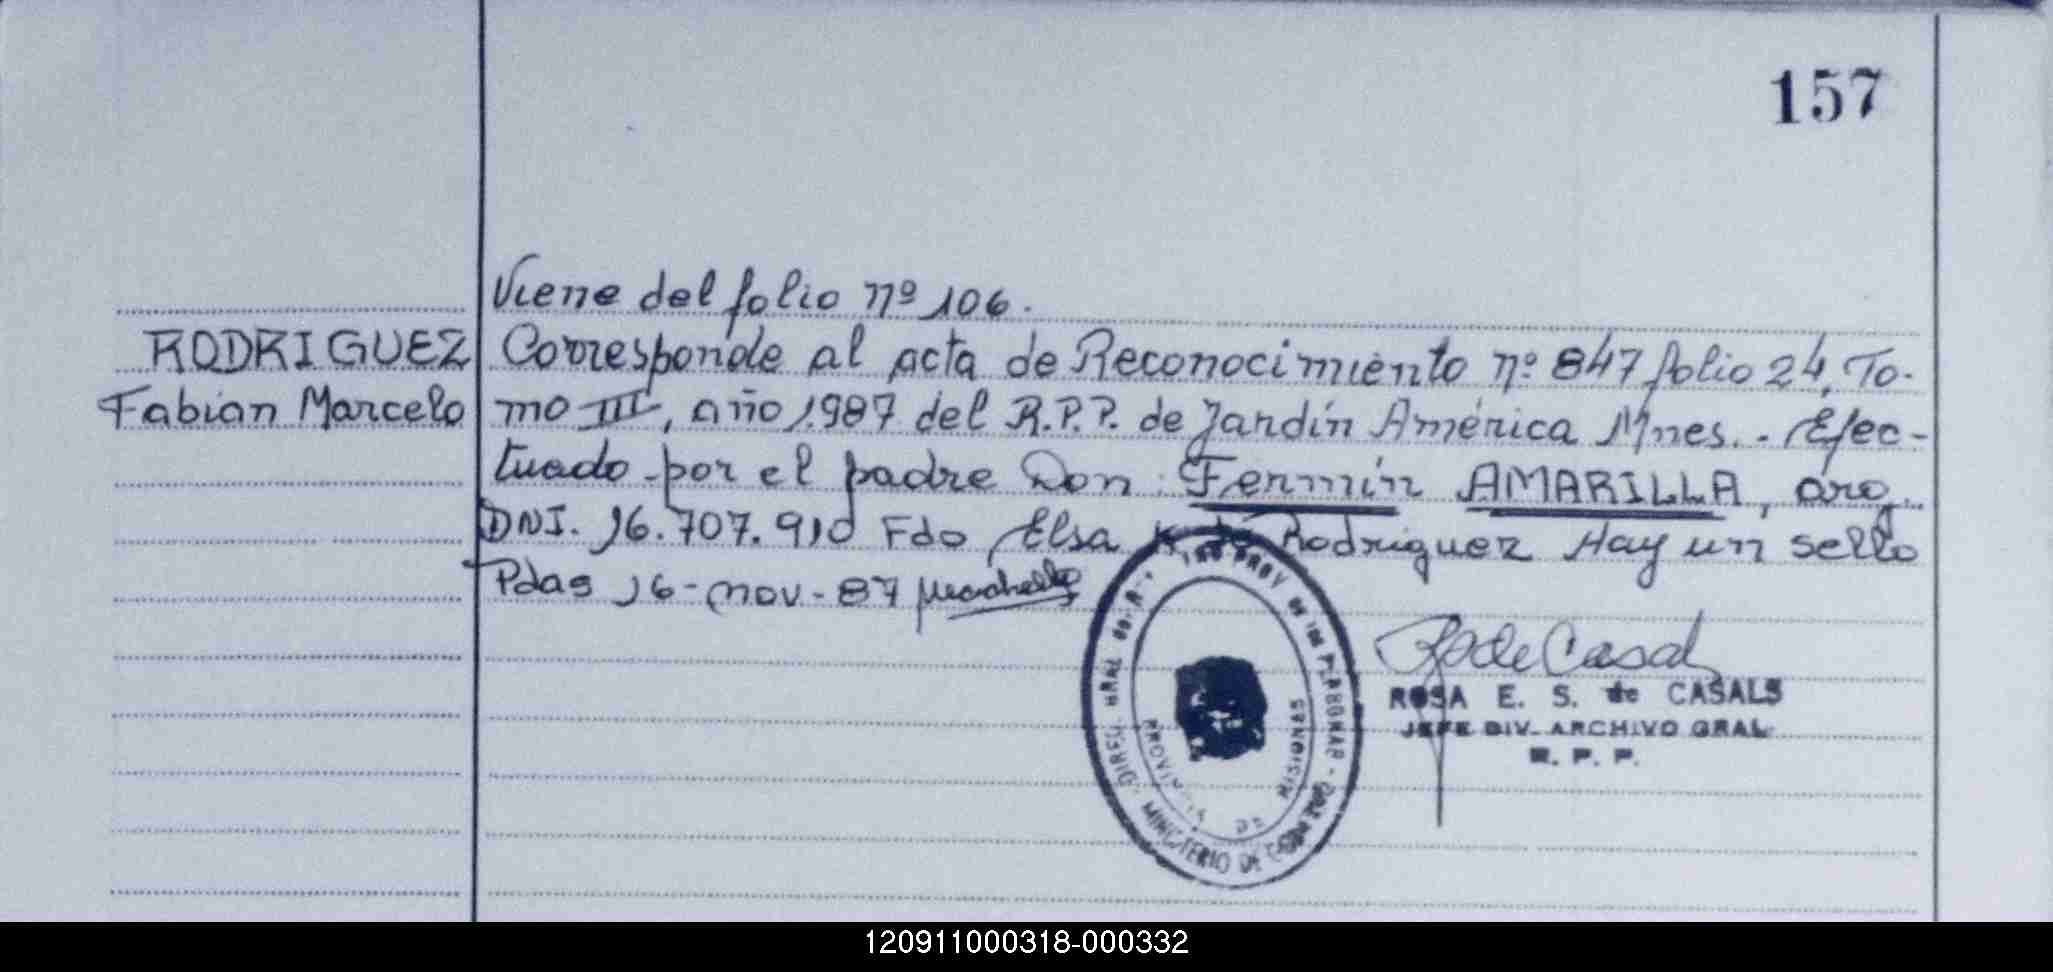 157
Viene del folio nº 106.
RODRIGUEZ Corresponde al acta de Reconocimiento nº 847 folio 24, To-
Fabian Marcelo mo III, año 1.987 del R.P.P. de Jardín América Mnes. - Efec-
tuado por el padre Don Fermín AMARILLA, arg.
DNI. 16.707.910 Fdo Elsa K. de Rodriguez Hay un sello
Pdas 16-nov-87
ROSA E. S. de CASALS
JEFE DIV. ARCHIVO GRAL.
R. P. P.
PROV DE LAS PERSONAS
MINISTERIO DE GOBIERNO
PROVINCIA DE MISIONES
120911000318-000332